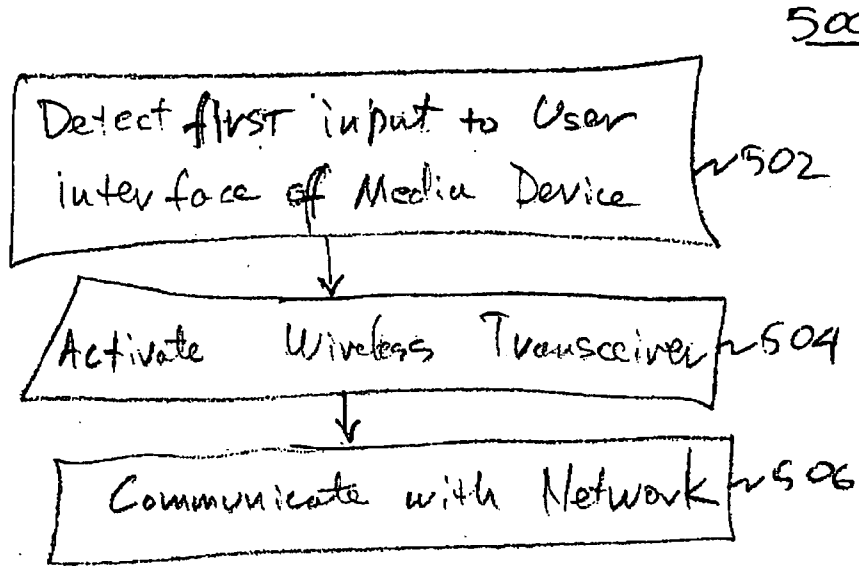 500
Detect first input to User
interface of Media Device
502
Activate Wireless Transceiver
504
Communicate with Network
506